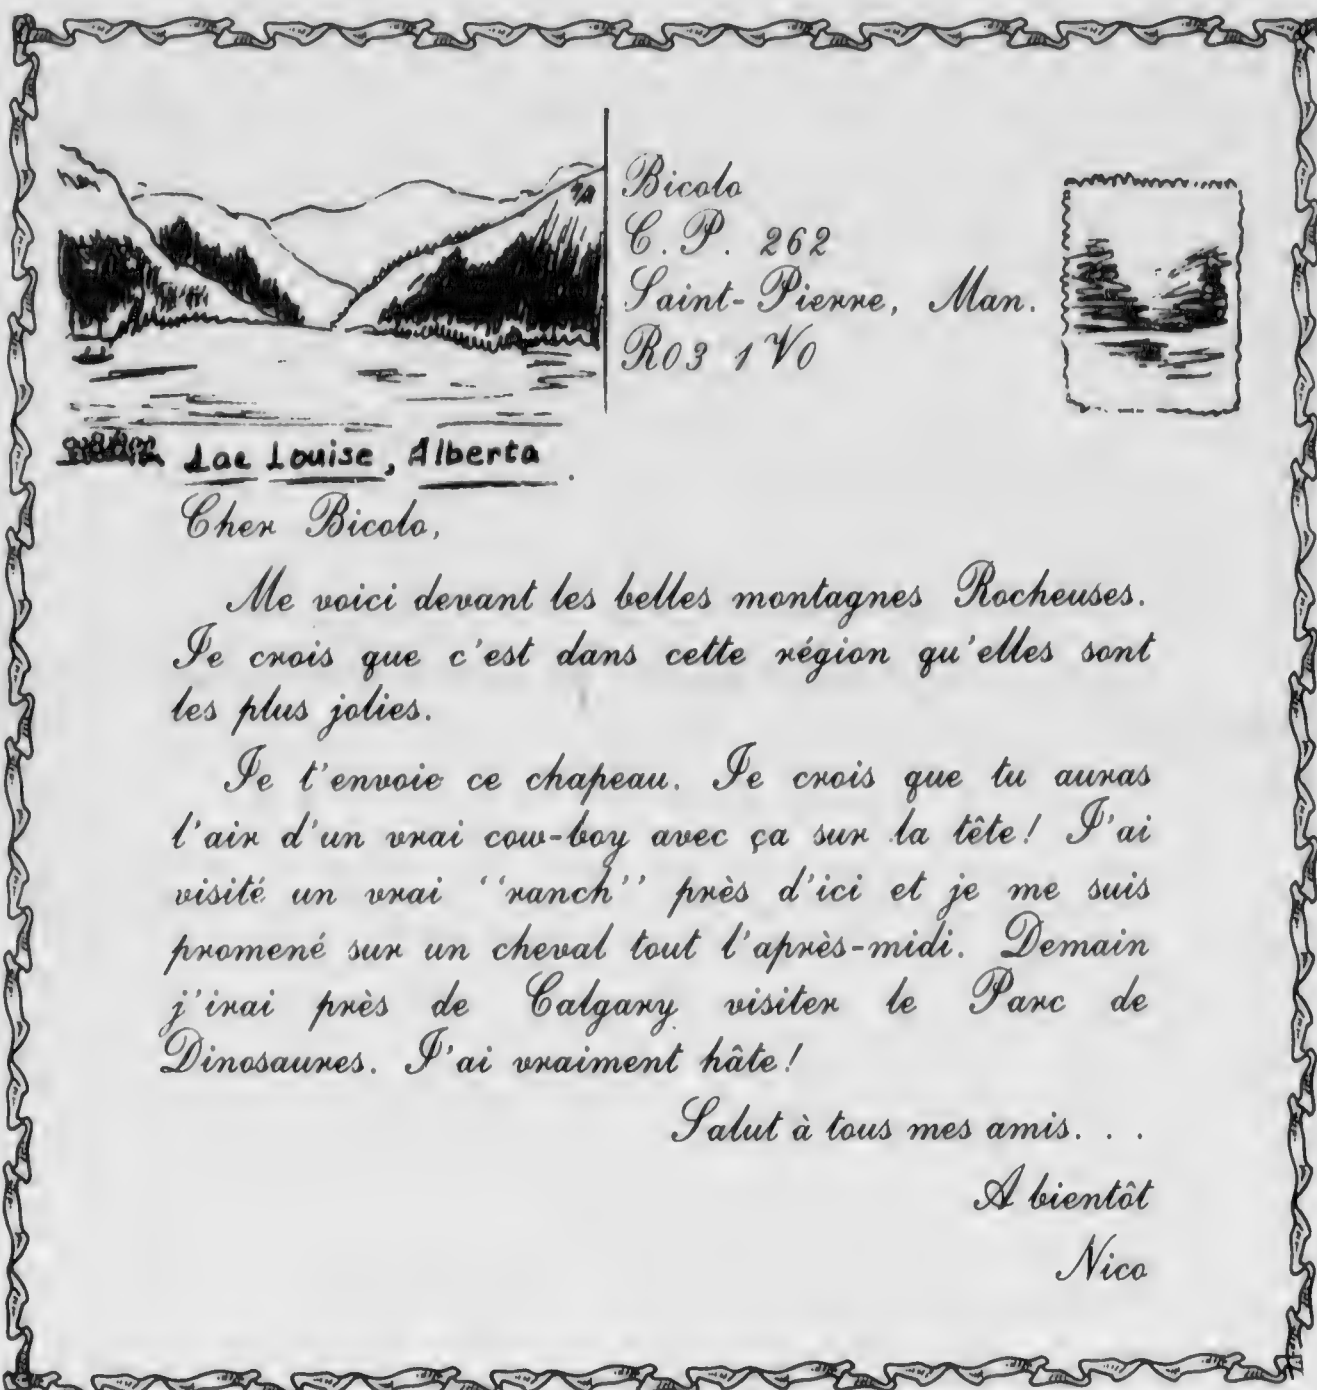 Bicolo
C.P. 262
Saint-Pierre, Man.
R03 1V0
Lac Louise, Alberta
Cher Bicolo,
Me voici devant les belles montagnes Rocheuses.
Je crois que c'est dans cette région qu'elles sont
les plus jolies.
Je t'envoie ce chapeau. Je crois que tu auras
l'air d'un vrai cow-boy avec ça sur la tête! J'ai
visité un vrai ''ranch'' près d'ici et je me suis
promené sur un cheval tout l'après-midi. Demain
j'irai près de Calgary visiter le Parc de
Dinosaures. J'ai vraiment hâte!
Salut à tous mes amis. . .
A bientôt
Nico